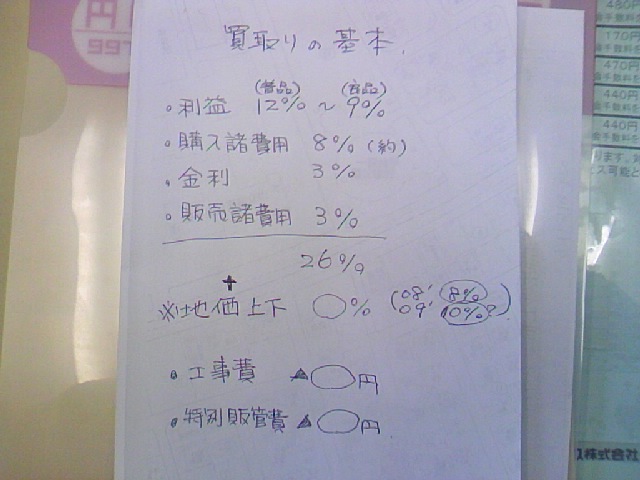 買取りの基本.
(普品) (良品)
・利益 12% ~ 9%
・購入諸費用 8% (約)
・金利 3%
・販売諸費用 3%
26%
+
※地価上下 ○% (08' 8%
09' 10%?)
・工事費 ▲○円
・特別販管費 ▲○円
円
480円
170円
470円
440円
440円
株式会社